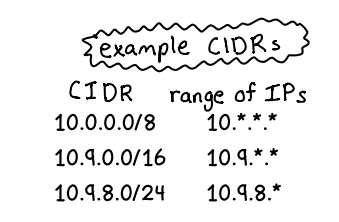 example CIDRs
CIDR range of IPs
10.0.0.0/8 10.*.*.*
10.9.0.0/16 10.9.*.*
10.9.8.0/24 10.9.8.*